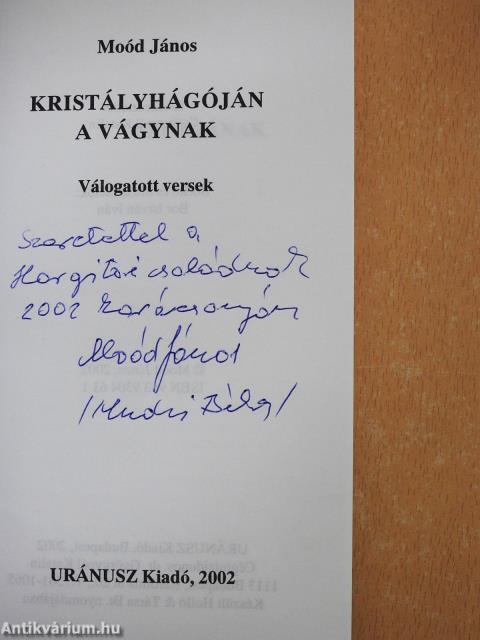 Moód János
KRISTÁLYHÁGÓJÁN
A VÁGYNAK
Válogatott versek
Szeretettel a
családnak
2002 karácsonyán
Moód János
Béla/
URÁNUSZ Kiadó, 2002
Antikvárium.hu